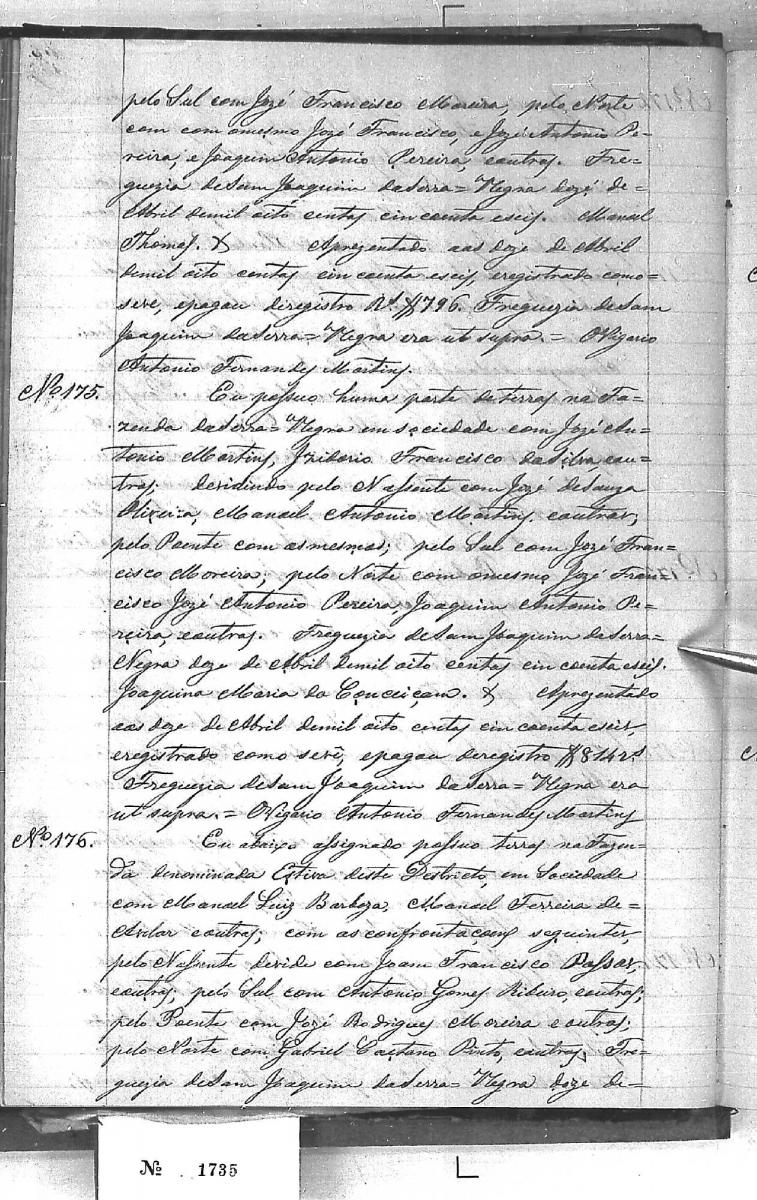 pelo Sul com Jozé Francisco Moreira, pelo Norte
com com omesmo Jozé Francisco, e Jozé Antonio Pe=
reira, e Joaquim Antonio Pereira, eoutros. Fre=
guezia deSam Joaquim daSerra=Negra doze de=
Abril demil oito centos cincoenta eseis. Manoel
Thomas. & Aprezentado aos doze de Abril
demil oito centos cincoenta eseis, eregistrado como=
sevê, epagou deregistro Rs. #796. Freguezia deSam
Joaquim daSerra=Negra era ut supra.= OVigario
Antonio Fernandes Martins.
No. 175. Eu possuo huma parte deterras na Fa=
zenda daSerra=Negra em sociedade com Jozé An=
tonio Martins, Izidorio Francisco daSilva, eou=
tros; devidindo pelo Nassente com Jozé deSouza
Oliveira, Manoel Antonio Martins, eoutros,
pelo Poente com osmesmos; pelo Sul com Jozé Fran=
cisco Moreira; pelo Norte com omesmo Jozé Fran
cisco Jozé Antonio Pereira, Joaquim Antonio Pe=
reira, eoutros. Freguezia deSam Joaquim daSerra=
Negra doze de Abril demil oito centos cincoenta eseis.
Joaquina Maria da Conceiçam. & Aprezentado
aos doze de Abril demil oito centos cincoenta eseis,
eregistrado como sevê, epagou deregistro #814rs
Freguezia deSam Joaquim daSerra=Negra era
ut supra.= OVigario Antonio Fernandes Martins
No. 176. Eu abaixo assignado possuo terras naFazen=
da denominada Estiva deste Destricto, em Sociedade
com Manoel Luiz Barboza, Manoel Ferreira de=
Avelar eoutros; com asconfrontacoens seguintes,
pelo Nassente devide com Joam Francisco Passos,
eoutros; pelo Sul com Antonio Gomes Ribeiro, eoutros;
pelo Poente com Jozé Rodrigues Moreira e outros;
pelo Norte com Gabriel Caetano Pinto, eoutros. Fre=
guezia deSam Joaquim daSerra=Negra doze de=
No. 1735